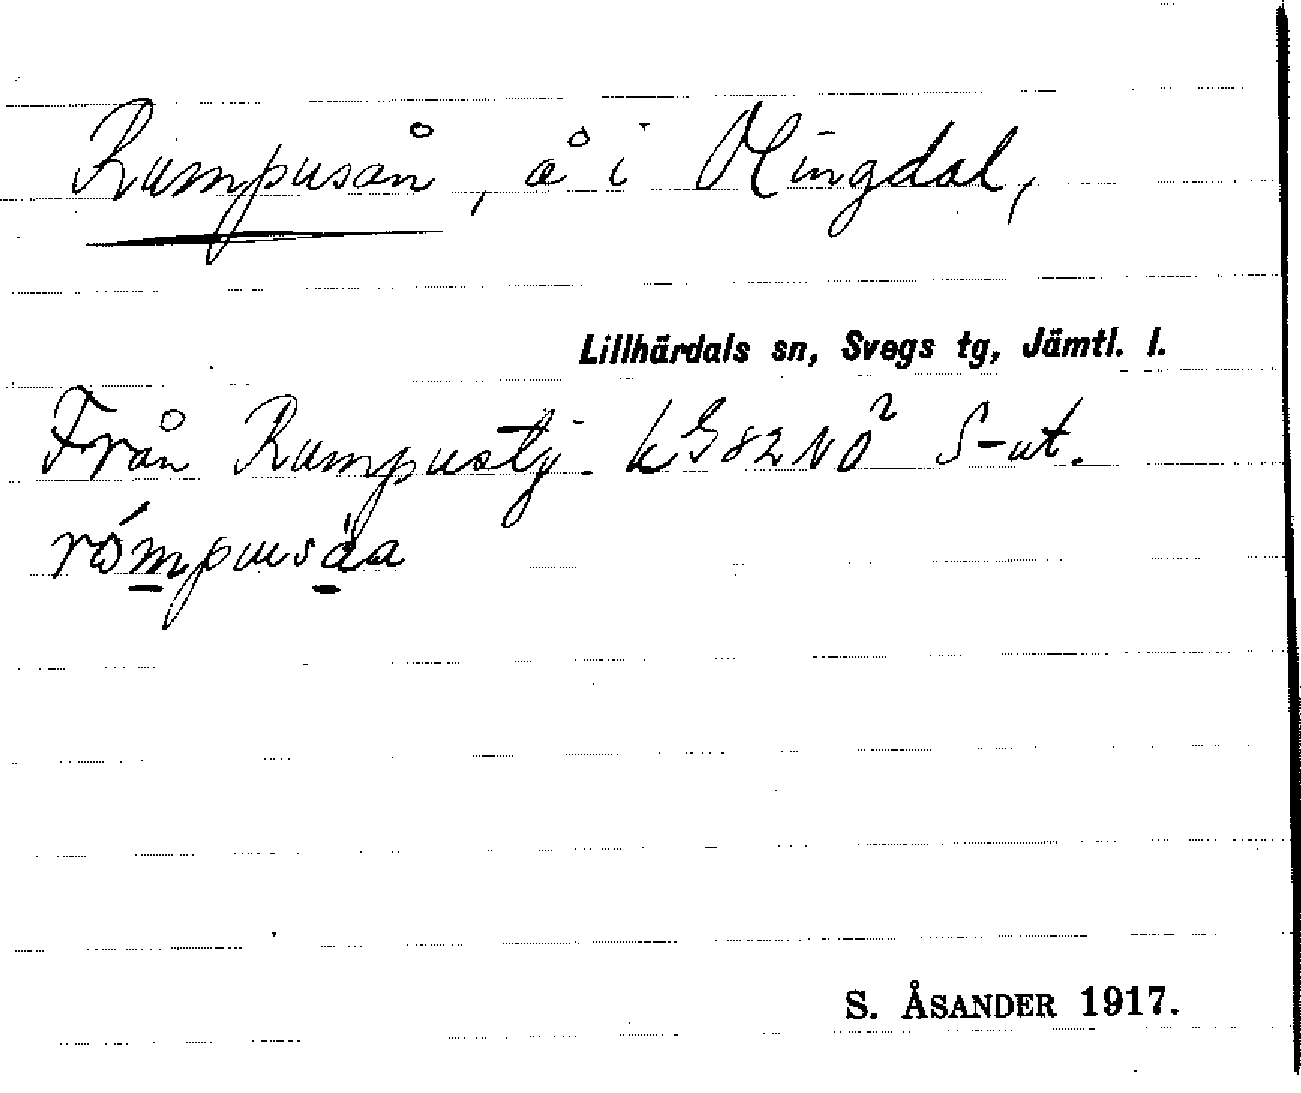 Rumpusån, å i Olingdal,
Lillhärdals sn, Svegs tg, Jämtl. l.
Från Rumpustj. k G 82 NO² S-ut.
rómpusåa
S. ÅSANDER 1917.